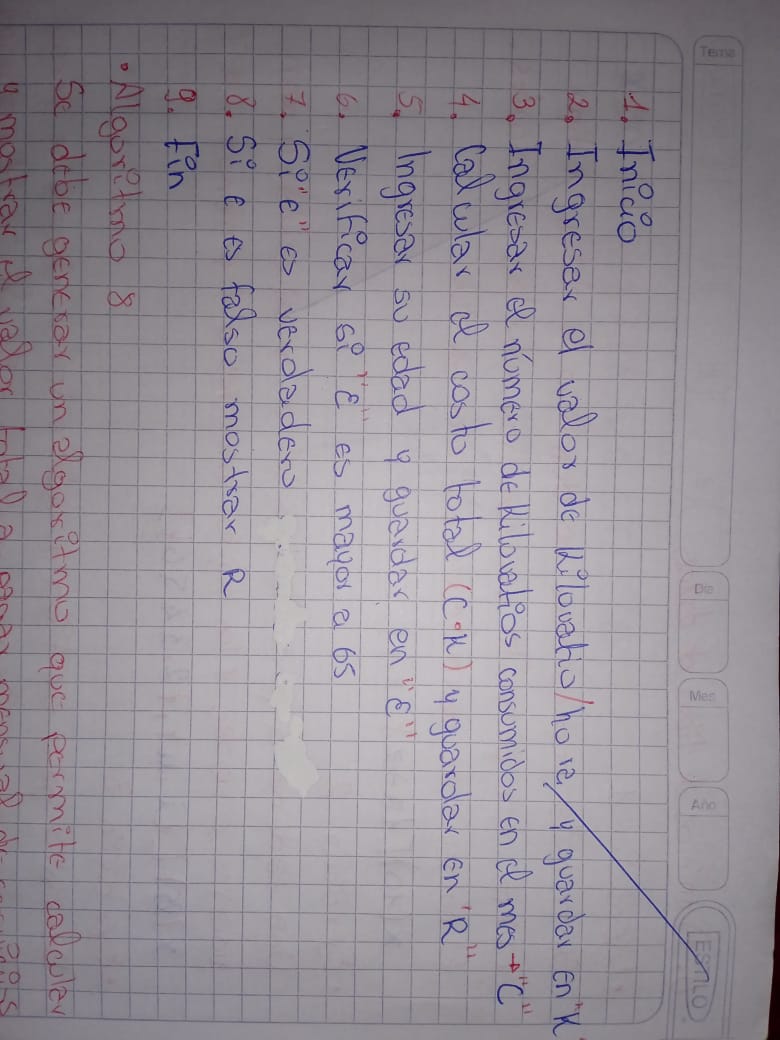 Tema
Dia
Mes
Año
ESTILO
1. Inicio
2. Ingresar el valor de Kilovatio/hora, y guardar en "K"
3. Ingresar el número de Kilovatios consumidos en el mes → "C"
4. Calcular el costo total (C·K) y guardar en "R"
5. Ingresar su edad y guardar en "E"
6. Verificar si "E" es mayor a 65
7. Si "E" es verdadero
8. Si E es falso mostrar R
9. Fin
• Algoritmo 8
Se debe generar un algoritmo que permite calcular
y mostrar el valor total a pagar mensual de